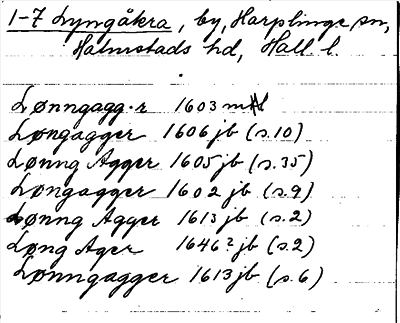 1-7 Lyngåkra, by, Harplinge sn,
Halmstads hd, Hall. l.
Lønngagg.r 1603 
Løngagger 1606 jb (s.10)
Lønng Agger 1605 jb (s.35)
Løngagger 1602 jb (s.9)
Lønng Agger 1613 jb (s.2)
Løng Ager 1646? jb (s.2)
Lønngagger 1613 jb (s.6)